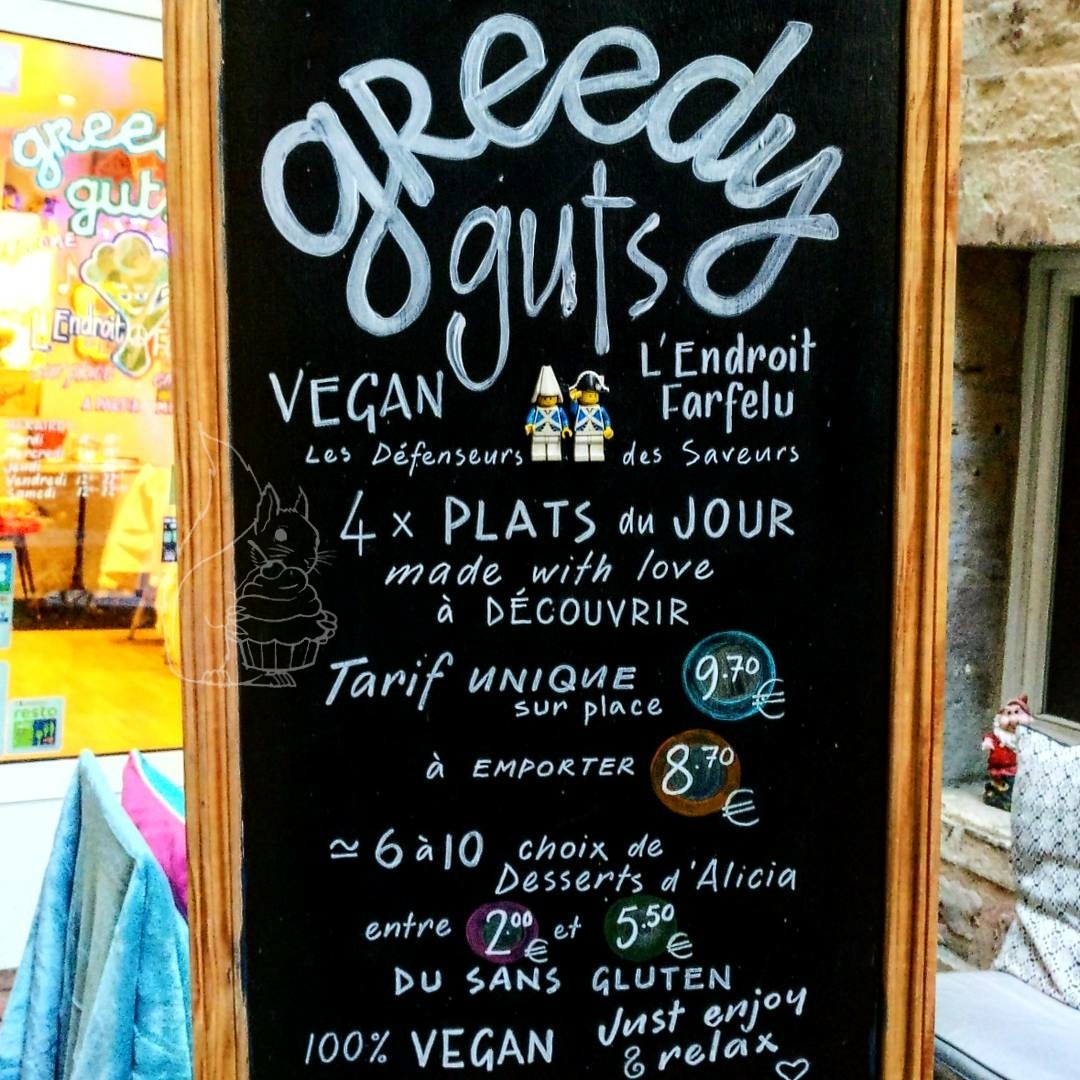 greedy
guts
VEGAN
L'Endroit
Farfelu
Les Défenseurs des Saveurs
4 x PLATS du JOUR
made with love
à DÉCOUVRIR
Tarif UNIQUE 9.70 €
sur place
à EMPORTER 8.70 €
≃ 6 à 10 choix de
Desserts d'Alicia
entre 2.00 € et 5.50 €
DU SANS GLUTEN
100% VEGAN Just enjoy
& relax
gree
guts
L'Endroit
HORAIRES
Mardi
Mercredi
Jeudi
Vendredi
Samedi
resto